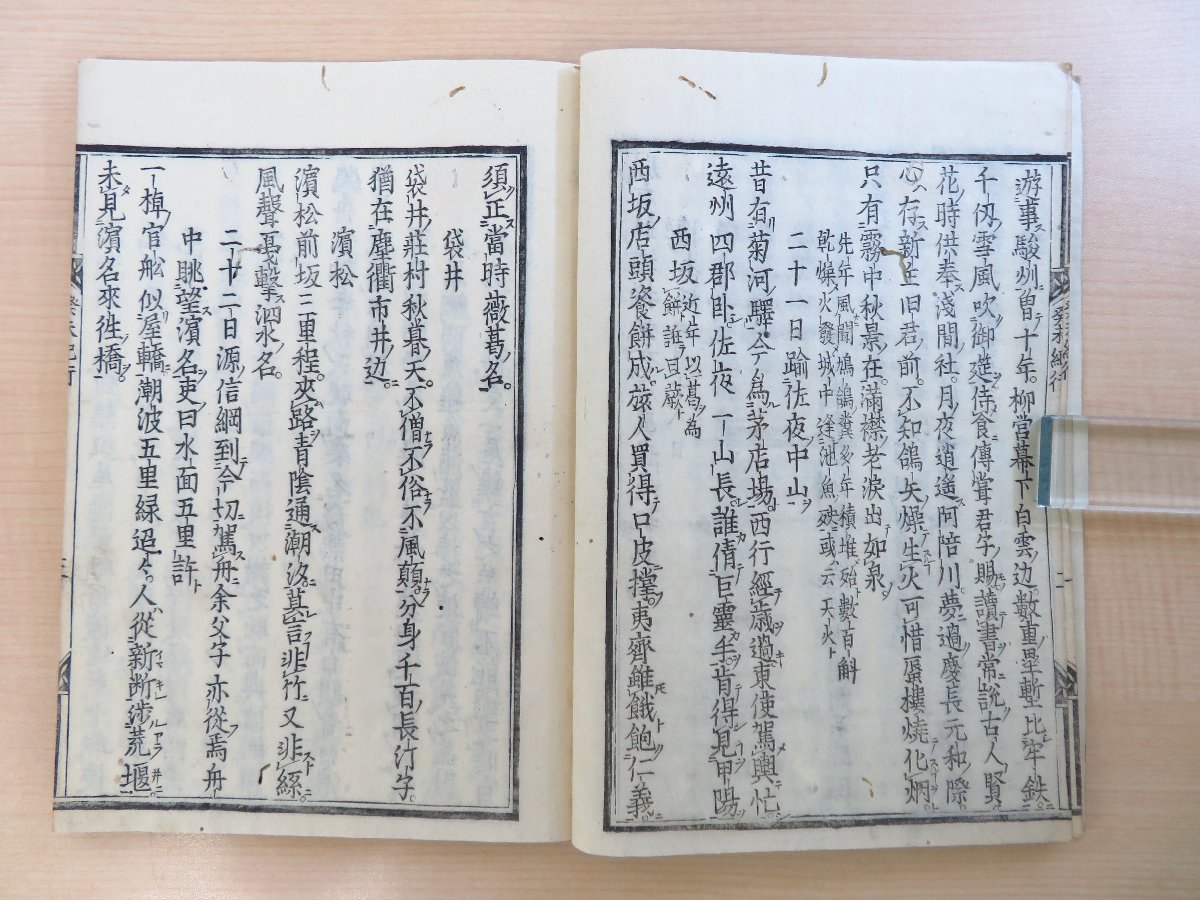 游事駿州曽十年柳営幕下白雲辺数重塁塹比牢鉄
千仭雪風吹御莚侍食傳嘗君子賜讀書常説古人賢
花時供奉浅間社月夜逍遥阿陪川夢過慶長元和際
心存新主旧君前不知鴿矢燥生火可惜蜃樓焼化烟
只有霧中秋景在満襟老涙出如泉
先年風聞鳩鴿糞多年積堆殆數百斛
乾燥火發城中逢池魚殃或云天火
二十一日踰佐夜中山
昔有菊河驛今為茅店場西行經歳過東使駕輿忙
遠州四郡臥佐夜一山長誰倩巨靈手肯得見甲陽
西坂近年以葛為
餅誰曰蕨
西坂店頭餈餅成旅人買得口皮撑夷齊雖餓飽仁義
須正當時薇葛名
袋井
袋井荘村秋暮天不僧不俗不風顛分身千百長汀子
猶在塵衢市井辺
濱松
濱松前坂三里程夾路青陰通潮汐莫言非竹又非絲
風聲戞擊泗水名
二十二日源信綱到今切駕舟余父子亦從焉舟
中眺望濱名吏曰水面五里許
一棹官舩似屋轎潮波五里緑迢々人從新断渉荒堰
未見濱名來徃橋